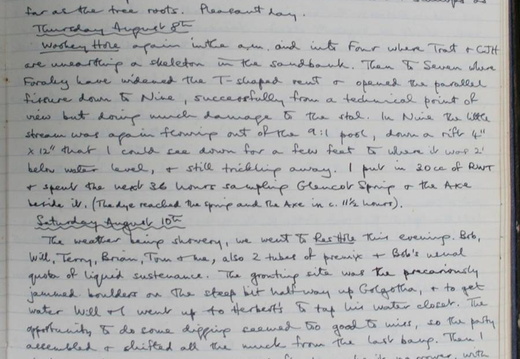 far as the tree roots. Pleasant day.
Thursday August 8th
Wookey Hole again in the a.m. and into Four where Trat & CJH
are unearthing a skeleton in the sandbank. Then to Seven where
Farady have widened the T-shaped rent & opened the parallel
fissure down to Nine, successfully from a technical point of
view but doing much damage to the stal. In Nine the little
stream was again flowing out of the 9:1 pool, down a rift 4"
x 12" that I could see down for a few feet to where it was 2'
below water level, & still trickling away. I put in 20cc of RWT
& spent the next 36 hours sampling Glencot Spring & the Axe
beside it. (The dye reached the spring and the Axe in c. 11½ hours).
Saturday August 10th
The weather being showery, we went to Res Hole this evening. Bob,
Will, Terry, Brian, Tom & me, also 2 tubes of premix & Bob's usual
quota of liquid sustenance. The grouting site was the precariously
jammed boulders on the steep bit half-way up Golgotha, & to get
water Will & I went up to Herbert's to tap his water closet. The
opportunity to do some digging seemed too good to miss, so the party
assembled & shifted all the muck from the last bang. Then
with